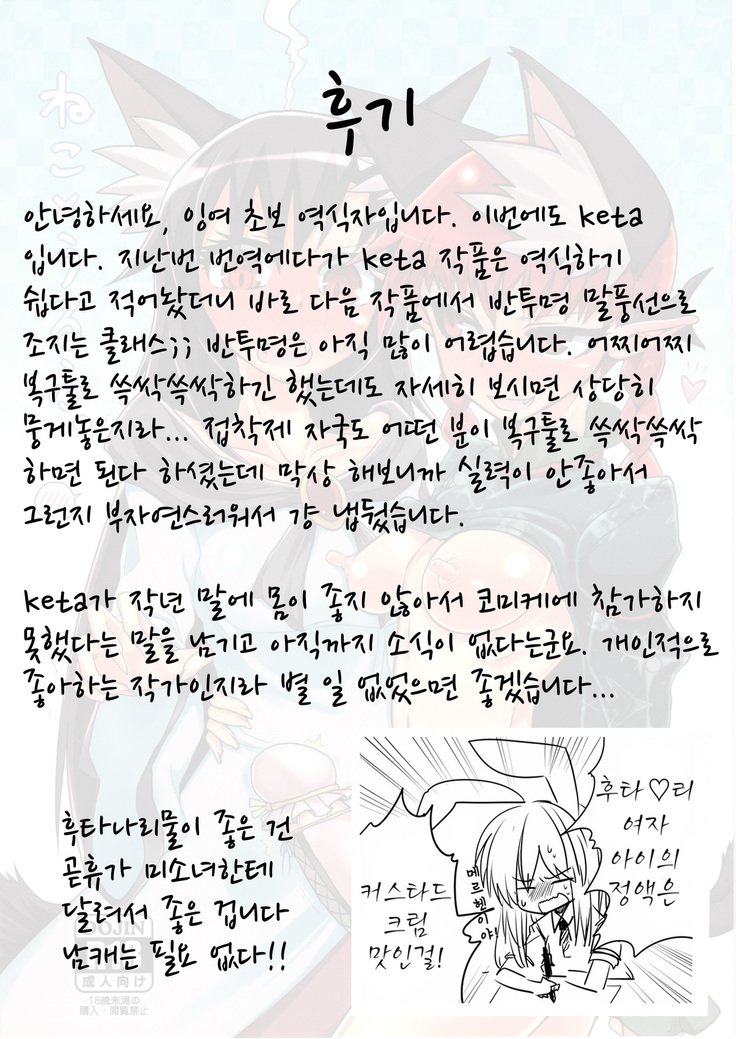 후기
안녕하세요, 잉여 초보 역식자입니다. 이번에도 keta
입니다. 지난번 번역에다가 keta 작품은 역식하기
쉽다고 적어놨더니 바로 다음 작품에서 반투명 말풍선으로
조지는 클래스;; 반투명은 아직 많이 어렵습니다. 어찌어찌
복구툴로 쓱싹쓱싹하긴 했는데도 자세히 보시면 상당히
뭉게놓은지라... 접착제 자국도 어떤 분이 복구툴로 쓱싹쓱싹
하면 된다 하셨는데 막상 해보니까 실력이 안좋아서
그런지 부자연스러워서 걍 냅뒀습니다.
keta가 작년 말에 몸이 좋지 않아서 코미케에 참가하지
못했다는 말을 남기고 아직까지 소식이 없다는군요. 개인적으로
좋아하는 작가인지라 별 일 없었으면 좋겠습니다...
후타나리물이 좋은 건
곧휴가 미소녀한테
달려서 좋은 겁니다
남캐는 필요 없다!!
후타♡리
여자
아이의
정액은
메르헨이야!
커스타드
크림
맛인걸!
ねこ
成人向け
18歳未満の
購入・閲覧禁止